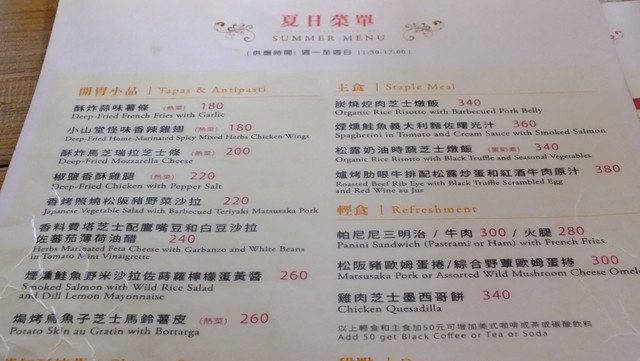 夏日菜單
SUMMER MENU
[ 供應時間: 週一至週日 11:30-17:00 ]
開胃小品 | Tapas & Antipasti
酥炸蒜味薯條 (熱菜) 180
Deep-Fried French Fries with Garlic
小山堂怪味香辣雞翅 (熱菜) 180
Deep-Fried Home-Marinated Spicy Mixed Herbs Chicken Wings
酥炸馬芝瑞拉芝士條 (熱菜) 200
Deep-Fried Mozzarella Cheese
椒鹽香酥雞腿 (熱菜) 220
Deep-Fried Chicken with Pepper Salt
香烤照燒松阪豬野菜沙拉 220
Japanese Vegetable Salad with Barbecued Teriyaki Matsusaka Pork
香料費塔芝士配鷹嘴豆和白豆沙拉
佐蕃茄薄荷油醋 240
Herbs Marinated Feta Cheese with Garbanzo and White Beans
in Tomato Mint Vinaigrette
煙燻鮭魚野米沙拉佐蒔蘿檸檬蛋黃醬 260
Smoked Salmon with Wild Rice Salad
and Dill Lemon Mayonnaise
焗烤烏魚子芝士馬鈴薯皮 (熱菜) 260
Potato Skin au Gratin with Bottarga
主食 | Staple Meal
炭燒焢肉芝士燉飯 340
Organic Rice Risotto with Barbecued Pork Belly
煙燻鮭魚義大利麵佐曙光汁 360
Spaghettini in Tomato and Cream Sauce with Smoked Salmon
松露奶油時蔬芝士燉飯 340
Organic Rice Risotto with Black Truffle and Seasonal Vegetables
爐烤肋眼牛排配松露炒蛋和紅酒牛肉原汁 380
Roasted Beef Rib Eye with Black Truffle Scrambled Egg
and Red Wine au Jus
輕食 | Refreshment
帕尼尼三明治 / 牛肉 300 / 火腿 280
Panini Sandwich (Pastrami or Ham) with French Fries
松阪豬歐姆蛋捲/綜合野蕈歐姆蛋捲 300
Matsusaka Pork or Assorted Wild Mushroom Cheese
雞肉芝士墨西哥餅 340
Chicken Quesadilla
以上輕食和主食加50元可增加美式咖啡或茶或碳酸飲料
Add 50 get Black Coffee or Tea or Soda